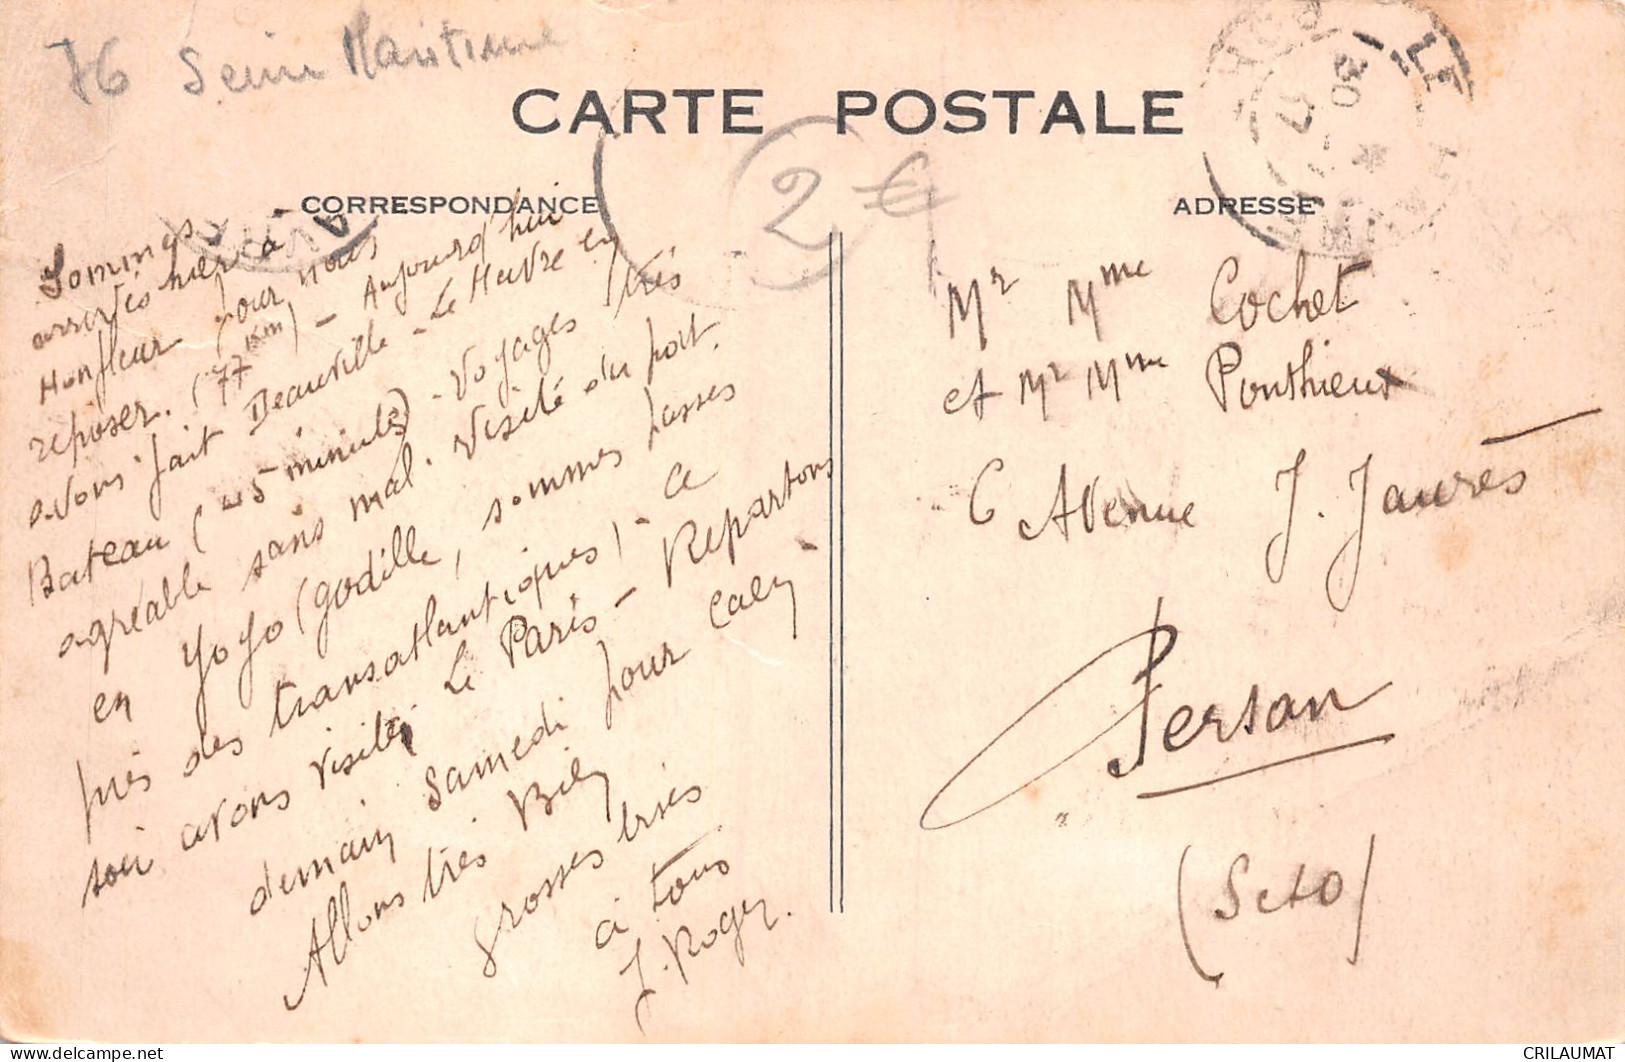 76 Seine Maritime
CARTE POSTALE
CORRESPONDANCE
ADRESSE
2€
LE
30
17
Sommes
arrivés hier à
Honfleur pour nous
reposer. (77 Km) – Aujourd'hui
avons fait Deauville – Le Havre en
Bateau (45 minutes) – Voyages très
agréable sans mal. Visité du port.
en yoyo (godille, sommes passés
près des transatlantiques) – Ce
soir avons visité Le Paris – Repartons
demain Samedi pour Caen
Allons très Bien
grosses bises
à tous
J. Roger.
Mr Mme Cochet
et Mr Mme Ponthieux
6 Avenue J. Jaurès
Persan
(S et O)
CRILAUMAT